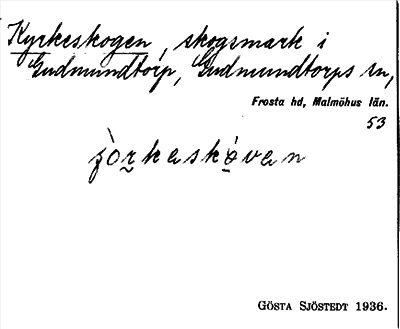 Kyrkeskogen, skogsmark i
Gudmundtorp, Gudmundtorps sn,
Frosta hd, Malmöhus län.
53
GÖSTA SJÖSTEDT 1936.